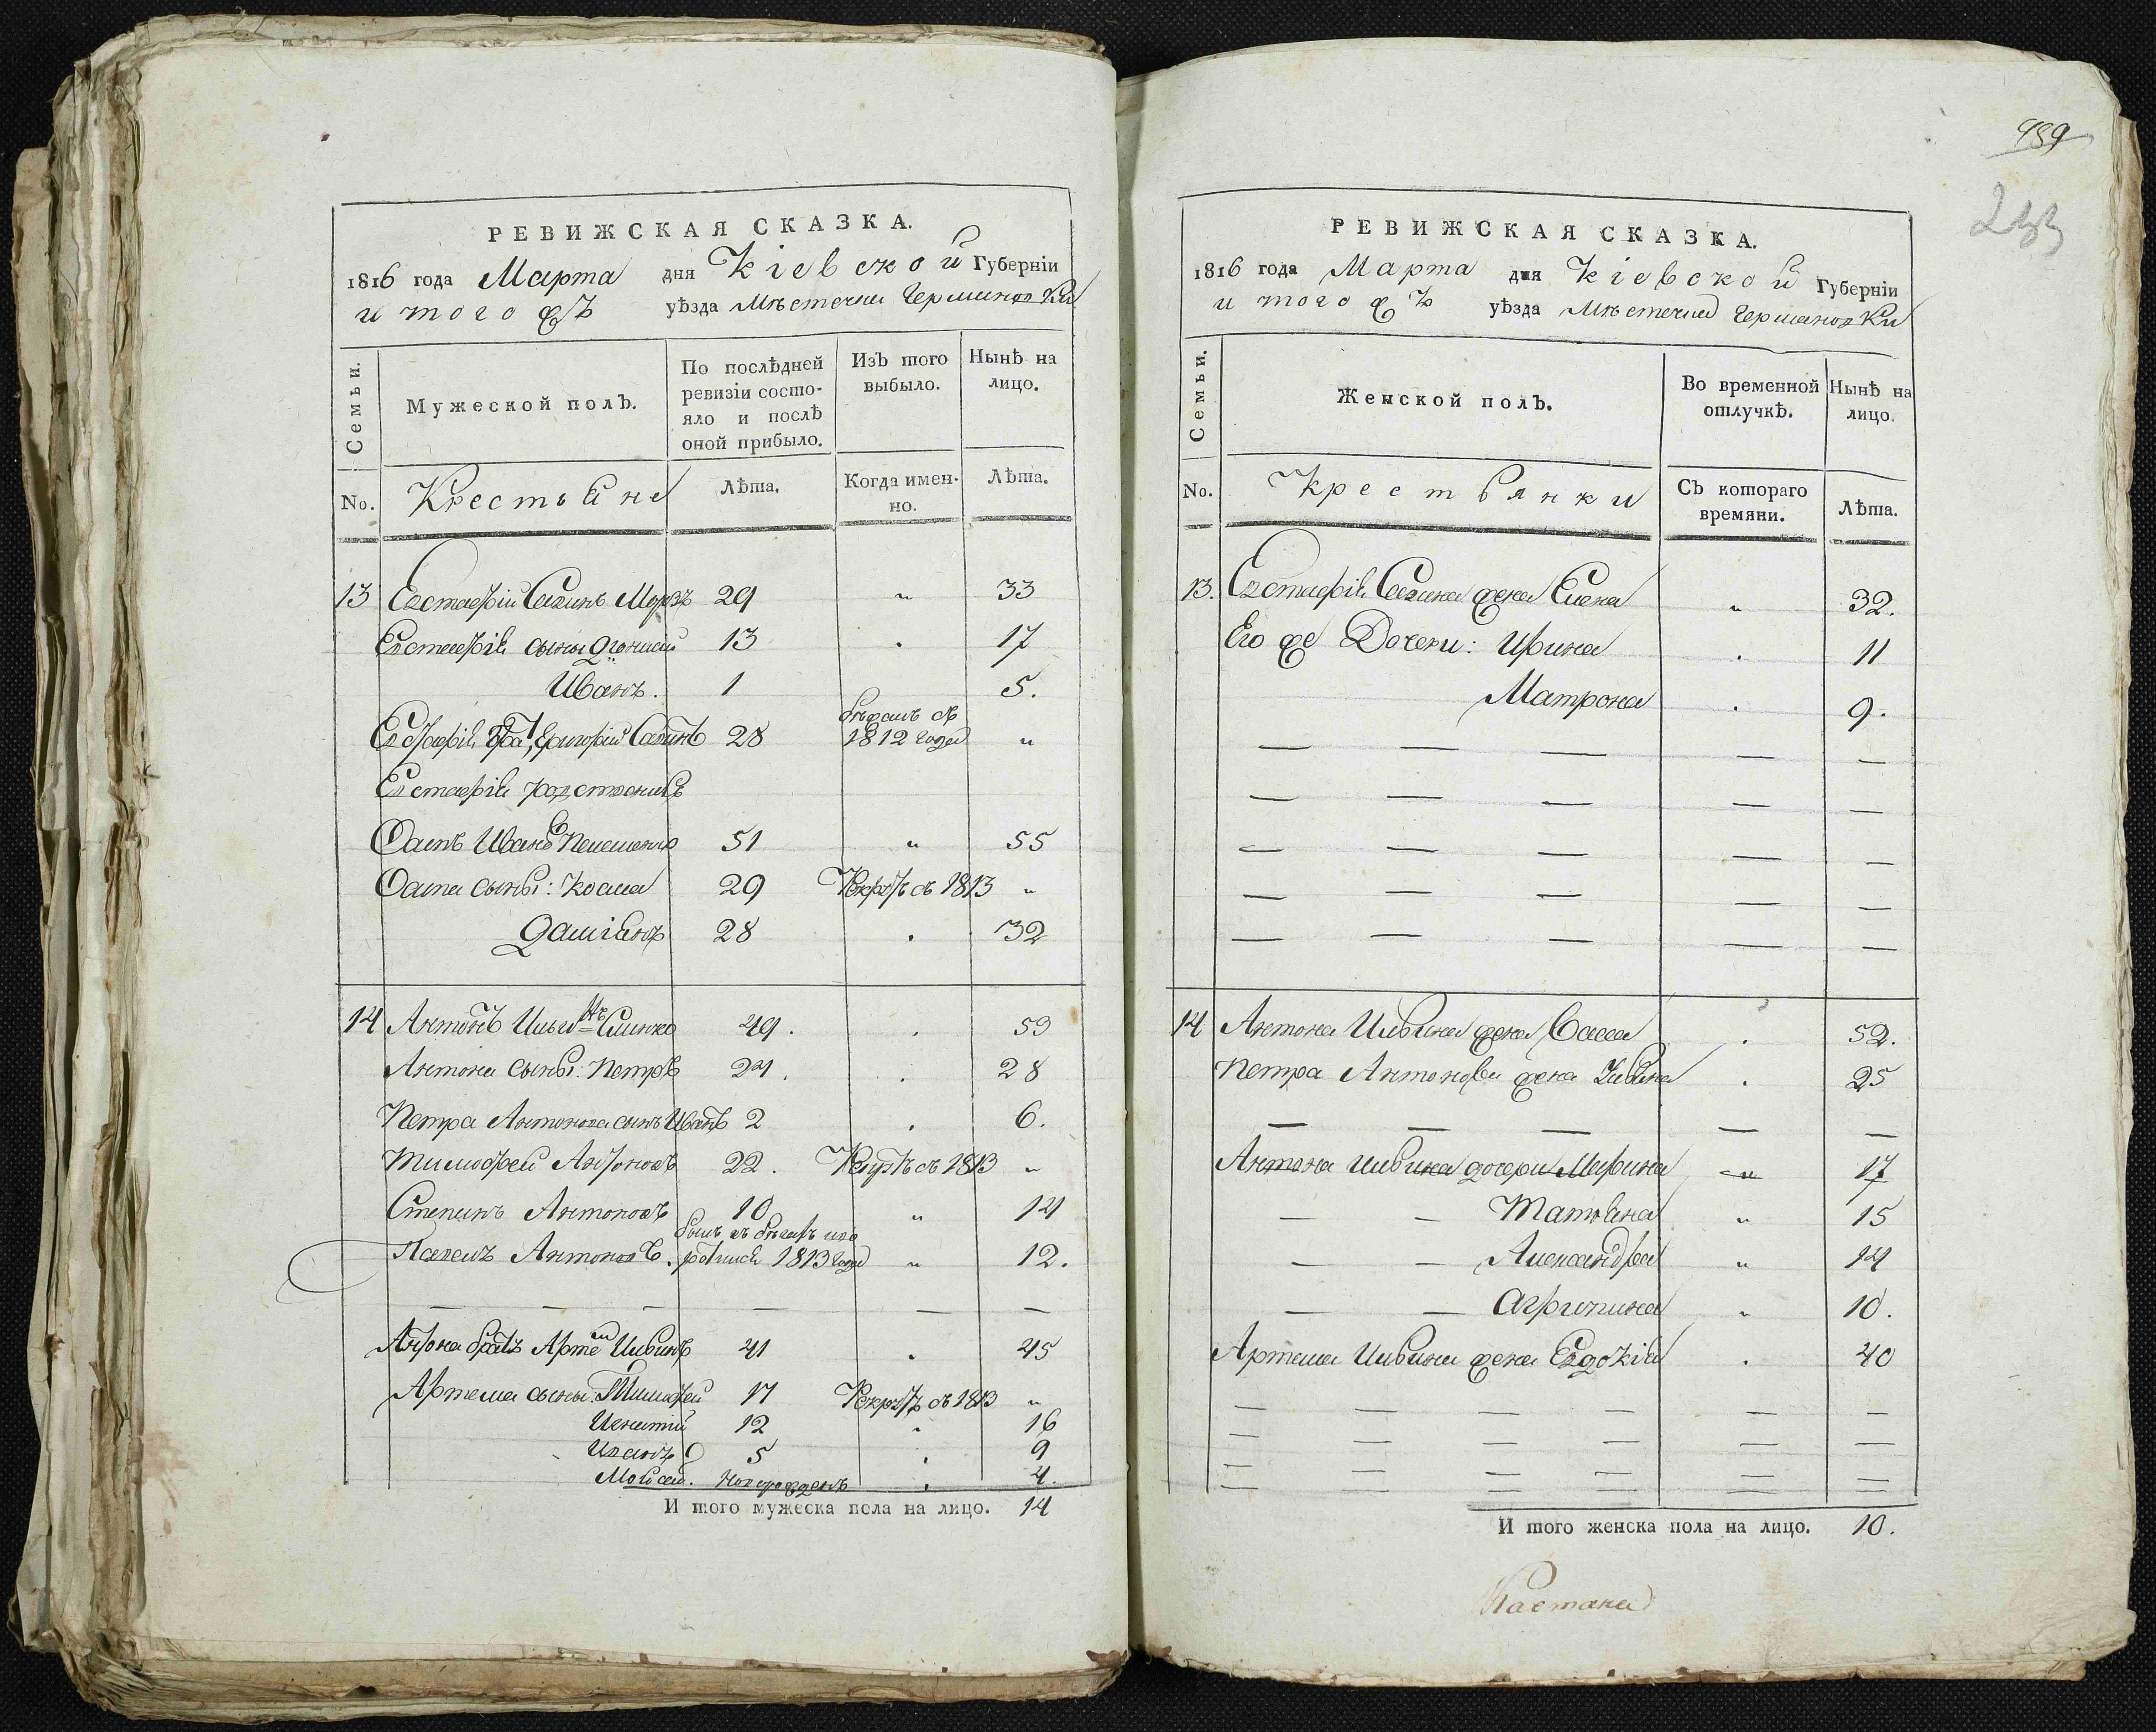 РЕВИЖСКАЯ СКАЗКА.
1816 года Марта дня Кіевской Губерніи
и того жъ уѣзда Мѣстечка Германовки
Семьи.
Мужеской полъ.
По послѣдней ревизіи состояло и послѣ оной прибыло.
Изъ того выбыло.
Нынѣ на лицо.
No.
Крестьяне
Лѣта.
Когда именно.
Лѣта.
13 Евстафій Савинъ 29 „ 33
Евстафія сыны Діонисій 13 . 17
Иванъ. 1 5.
Евстафія братъ Григорій Савинъ 28 бѣжалъ въ 1812 года „
Евстафія родственникъ
Иванъ 51 „ 55
сыны: Косма 29 Рекрутъ въ 1813 „
Даміанъ 28 . 32
14 Антонъ Ильинъ 49. . 53
Антона сыны: Петръ 24. . 28
Петра Антонова сынъ Иванъ 2 . 6.
Тимофей Антоновъ 22. Рекрутъ въ 1813 „
Степанъ Антоновъ 10 „ 14
Павелъ Антоновъ. былъ въ бѣгахъ 1813 года „ 12.
— — — — — —
Антона братъ Артемій Ильинъ 41 . 45
Артема сыны: Тимофей 17 Рекрутъ въ 1813 „
Игнатій 12 . 16
Иванъ 5 . 9
Мойсей. новорожденъ . 4.
И того мужеска пола на лицо. 14
489
233
РЕВИЖСКАЯ СКАЗКА.
1816 года Марта дня Кіевской Губерніи
и того жъ уѣзда Мѣстечка Германовки
Семьи.
Женской полъ.
Во временной отлучкѣ.
Нынѣ на лицо.
No.
Крестьянки
Съ котораго времяни.
Лѣта.
13. Евстафія Савина жена Елена „ 32.
Его же Дочери: Ирина . 11
Матрона . 9.
— — — — —
— — — — —
— — — — —
— — — — —
— — — — —
14 Антона Ильина жена . 52.
Петра Антонова жена . 25
— — — — —
Антона Ильина дочери Марина „ 17
— — Татьяна „ 15
— — Александра „ 14
— — Агрипина „ 10.
Артема Ильина жена Евдокія . 40
— — — — —
— — — — —
— — — — —
— — — — —
И того женска пола на лицо. 10.